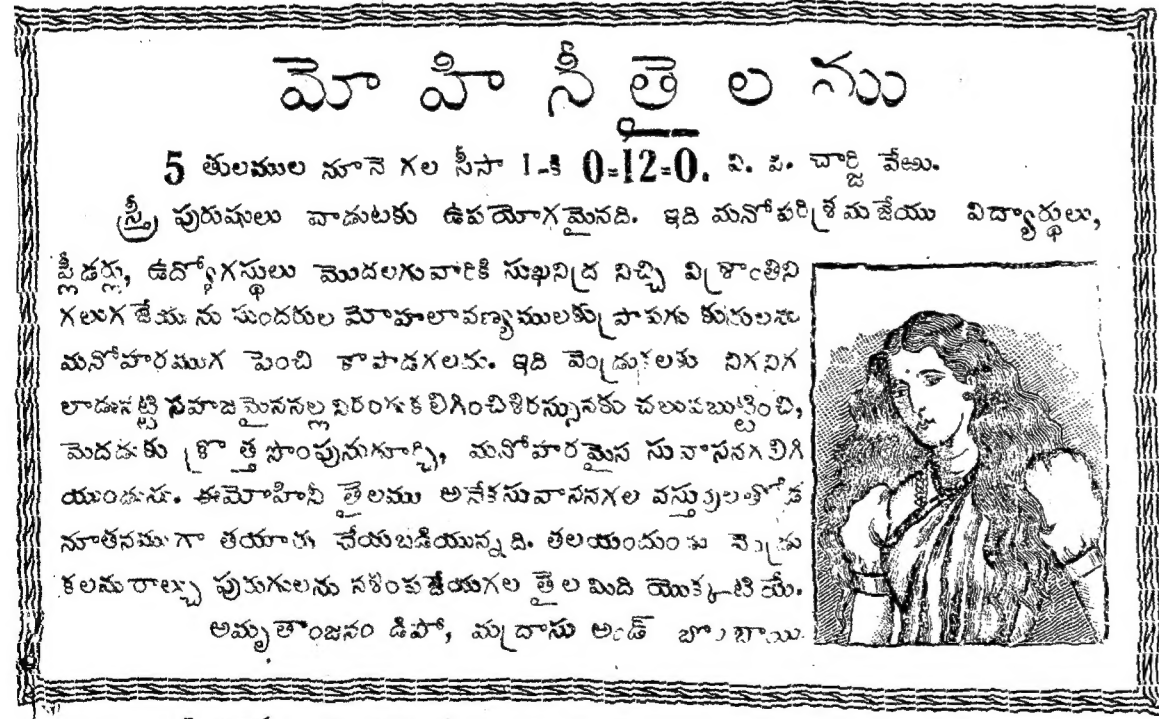 మోహినీతైలము
5 తులముల నూనె గల సీసా 1-కి 0=12=0. వి. పి. చార్జి వేఱు.
స్త్రీ పురుషులు వాడుటకు ఉపయోగమైనది. ఇది మనోపరిశ్రమజేయు విద్యార్థులు,
ప్లీడర్లు, ఉద్యోగస్థులు మొదలగువారికి సుఖనిద్ర నిచ్చి విశ్రాంతిని
గలుగ జేయు ను సుందరుల మోహలావణ్యములకు ప్రాపగు కురులను
మనోహరముగ పెంచి కాపాడగలదు. ఇది వెండ్రుకలకు నిగనిగ
లాడునట్టి సహజమైననల్లనిరంగుకలిగించిశిరస్సునకు చలువబుట్టించి,
మెదడుకు క్రొత్త సొంపునుగూర్చి, మనోహరమైన సువాసనగలిగి
యుండును. ఈమోహినీ తైలము అనేకసువాసనగల వస్తువులతోడ
నూతనముగా తయారు చేయబడియున్నది. తలయందుండు వెండ్రు
కలను రాల్చు పురుగులను నశింపజేయగల తైలమిది యొక్కటియే.
అమృతాంజనం డిపో, మద్రాసు అండ్ బొంబాయి